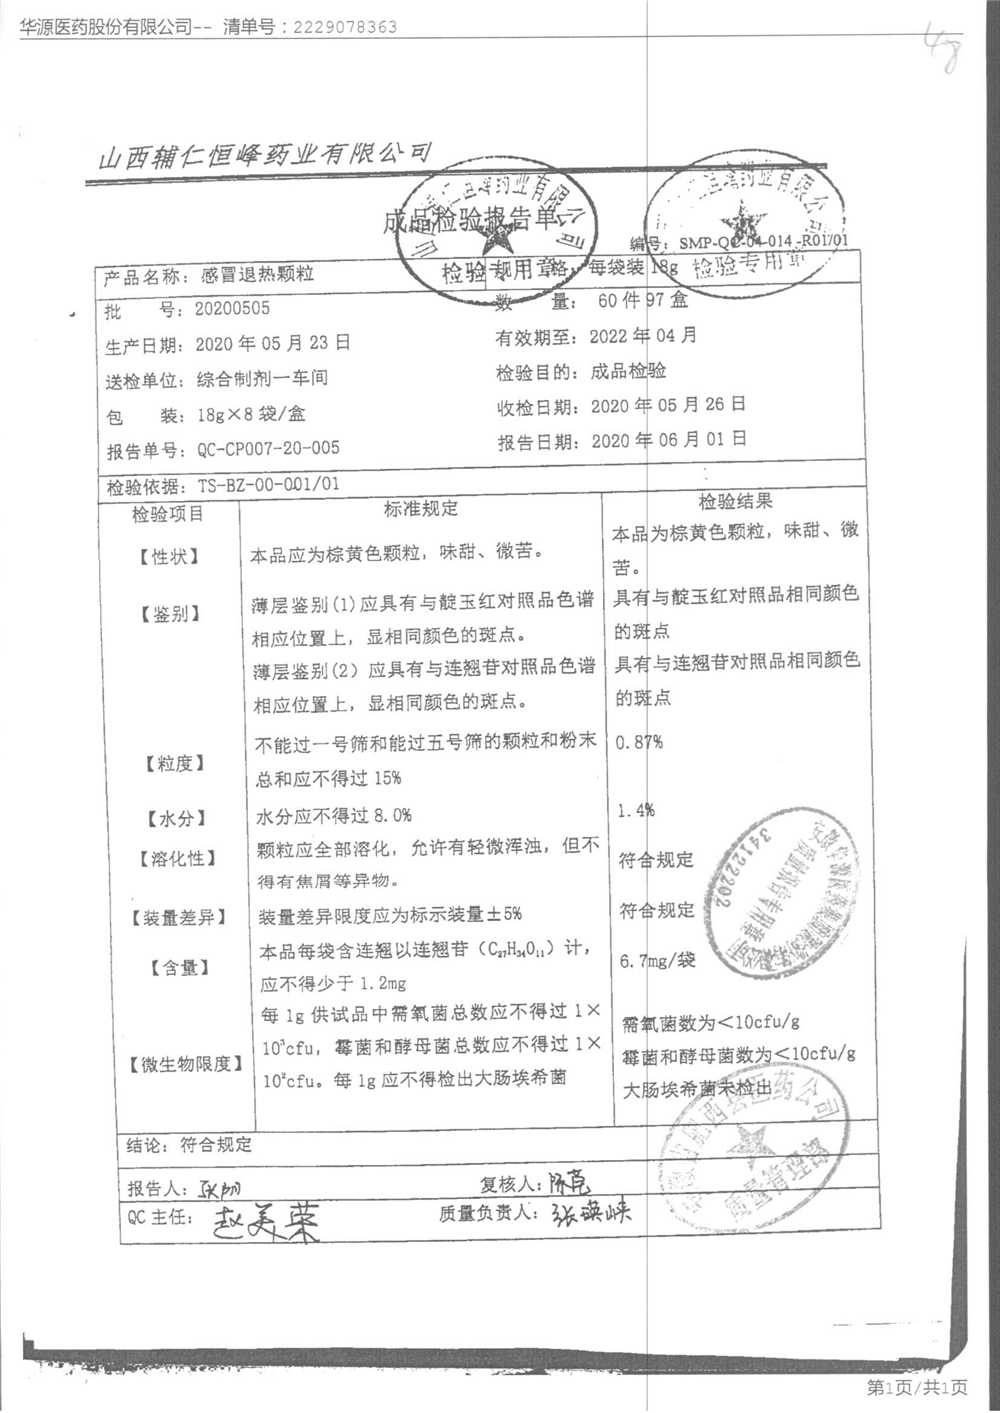 华源医药股份有限公司-- 清单号：2229078363
山西辅仁恒峰药业有限公司
成品检验报告单
编号：SMP-QC-04-014 -R01/01
检验专用章
检验专用章
产品名称：感冒退热颗粒 规 格：每袋装 18g
批 号：20200505 数 量：60 件 97 盒
生产日期：2020 年 05 月 23 日 有效期至：2022 年 04 月
送检单位：综合制剂一车间 检验目的：成品检验
包 装：18g×8 袋/盒 收检日期：2020 年 05 月 26 日
报告单号：QC-CP007-20-005 报告日期：2020 年 06 月 01 日
检验依据：TS-BZ-00-001/01
检验项目 标准规定 检验结果
【性状】 本品应为棕黄色颗粒，味甜、微苦。 本品为棕黄色颗粒，味甜、微
苦。
【鉴别】 薄层鉴别(1)应具有与靛玉红对照品色谱 具有与靛玉红对照品相同颜色
相应位置上，显相同颜色的斑点。 的斑点
薄层鉴别(2) 应具有与连翘苷对照品色谱 具有与连翘苷对照品相同颜色
相应位置上，显相同颜色的斑点。 的斑点
【粒度】 不能过一号筛和能过五号筛的颗粒和粉末 0.87%
总和应不得过 15%
【水分】 水分应不得过 8.0% 1.4%
【溶化性】 颗粒应全部溶化，允许有轻微浑浊，但不 符合规定
得有焦屑等异物。
【装量差异】 装量差异限度应为标示装量±5% 符合规定
【含量】 本品每袋含连翘以连翘苷（C₂₇H₃₄O₁₁）计， 6.7mg/袋
应不得少于 1.2mg
【微生物限度】 每 1g 供试品中需氧菌总数应不得过 1× 需氧菌数为＜10cfu/g
10³cfu，霉菌和酵母菌总数应不得过 1× 霉菌和酵母菌数为＜10cfu/g
10²cfu。每 1g 应不得检出大肠埃希菌 大肠埃希菌未检出
34122202
结论：符合规定
报告人： 复核人：
QC 主任：赵美荣 质量负责人：张瑛峡
第1页/共1页